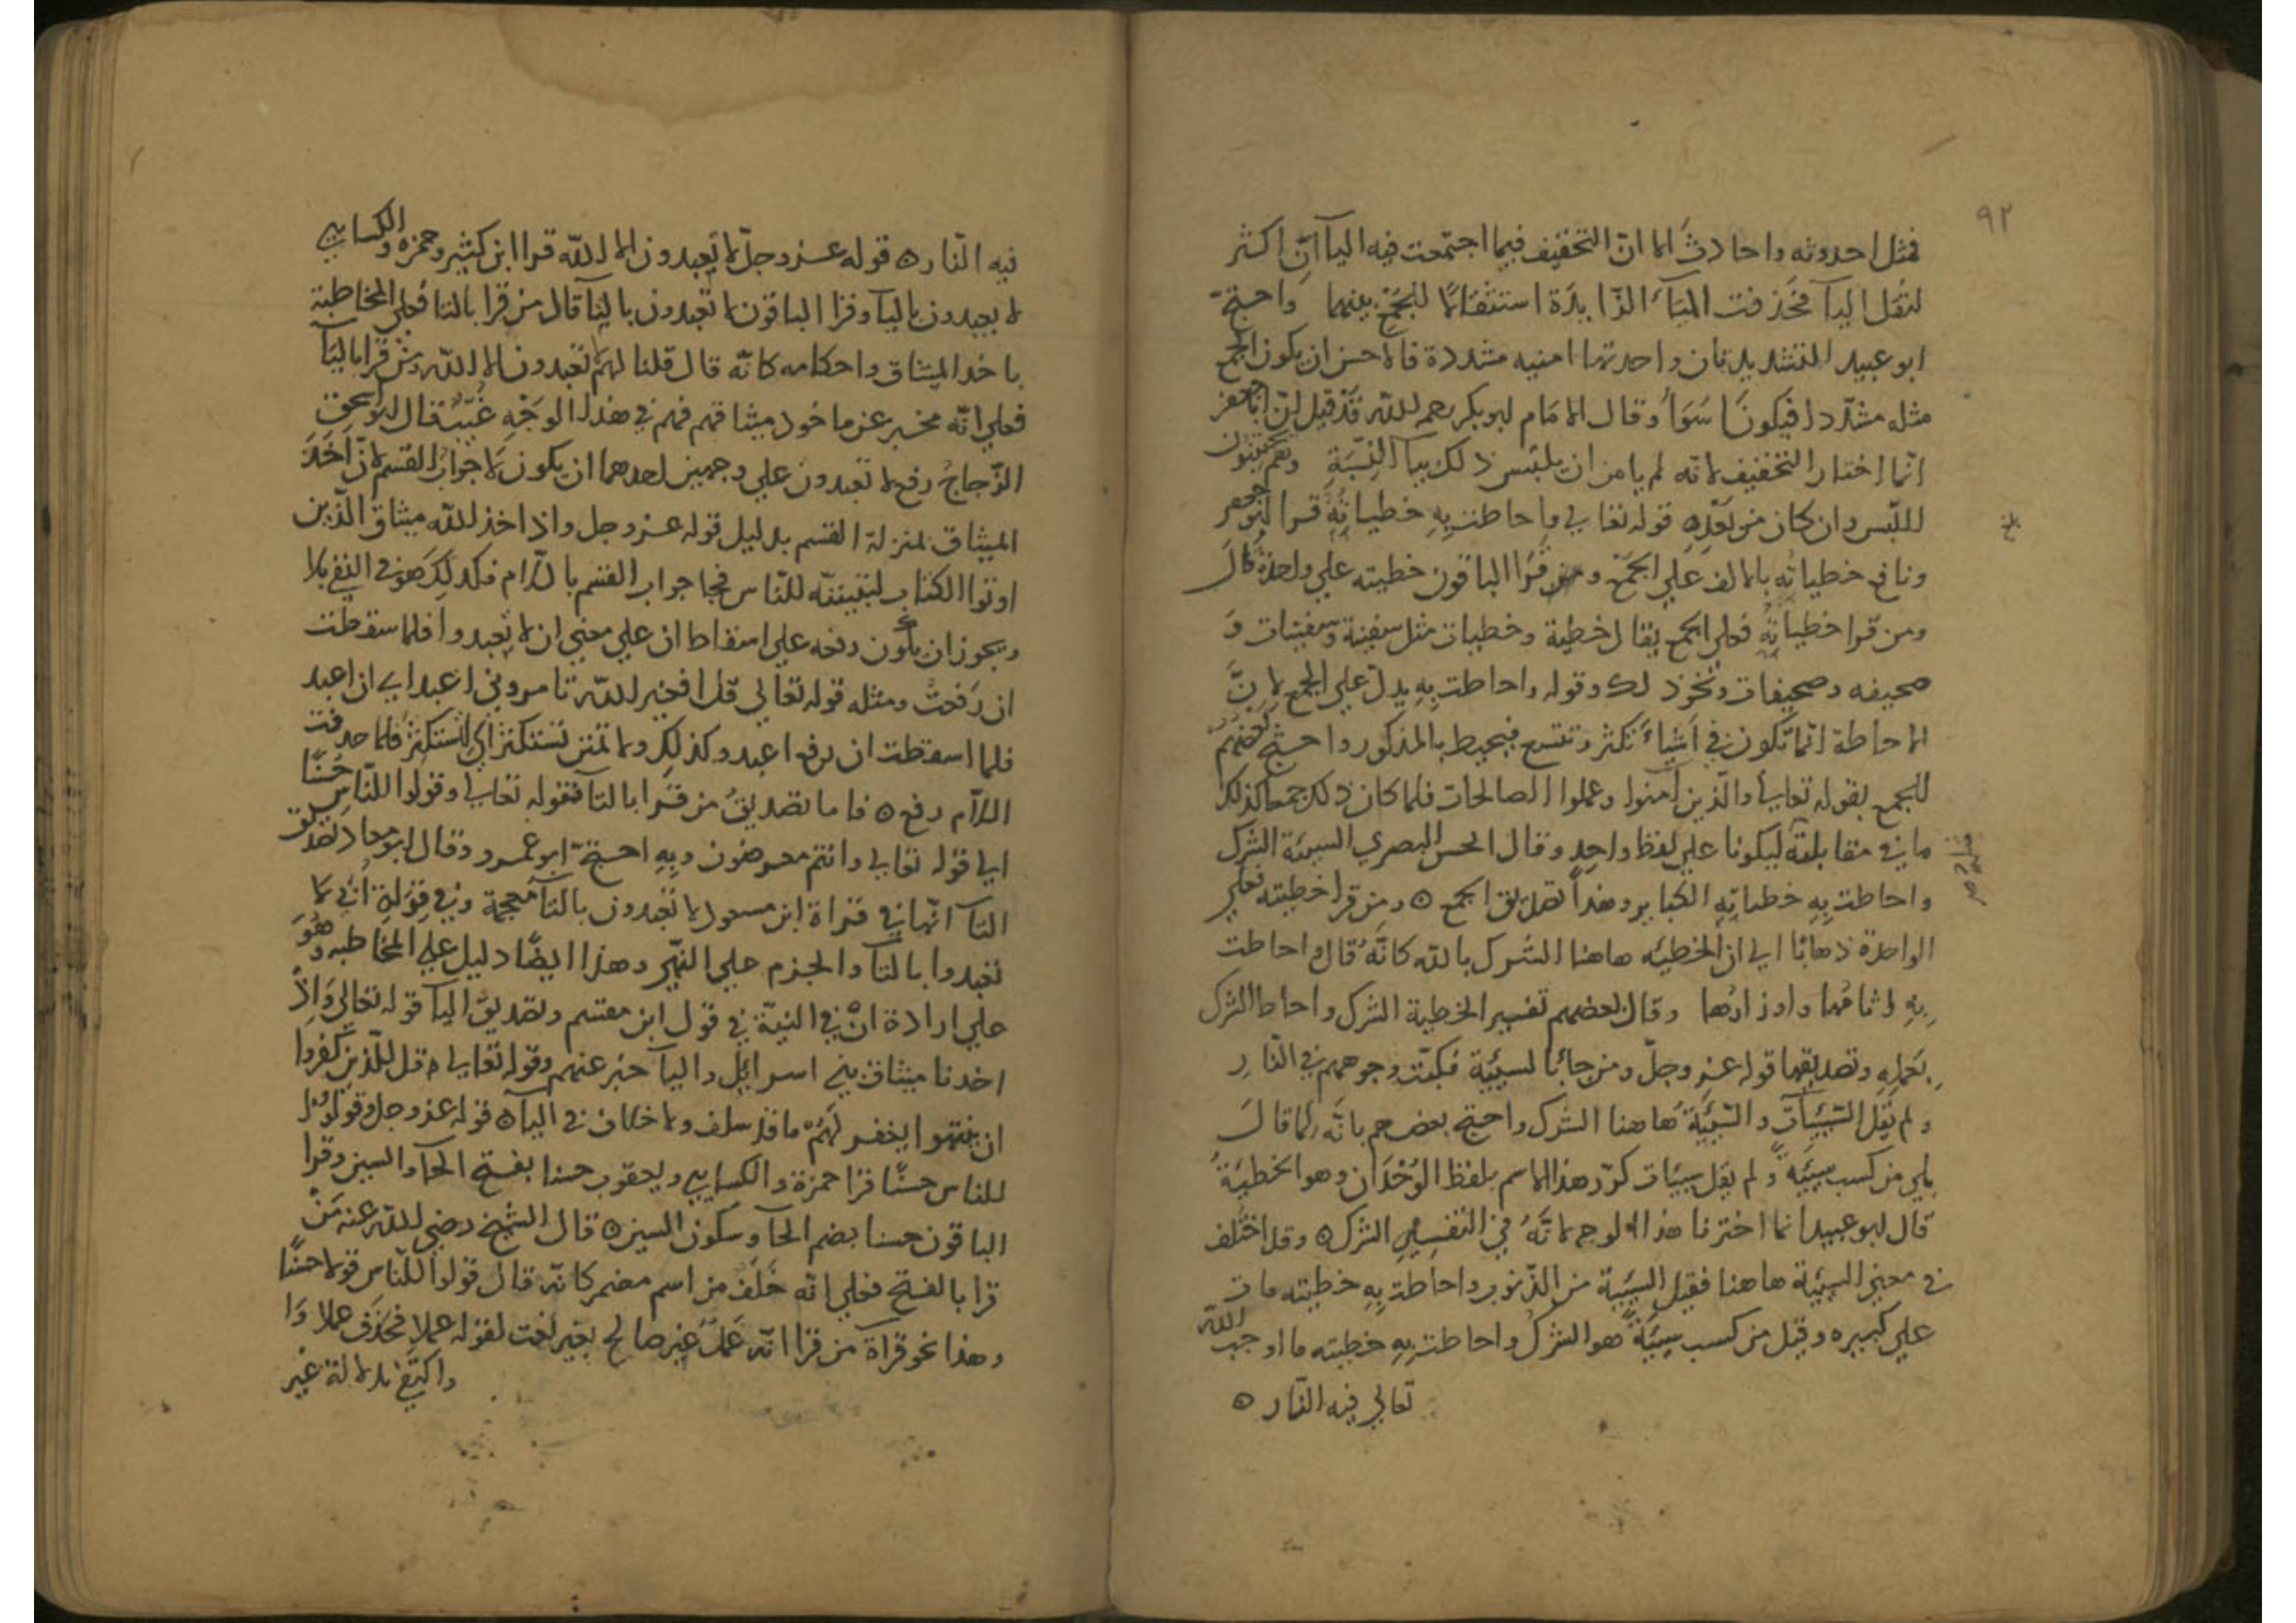 ٩٢
فمثل احدوثه واحاديث الا ان التخفيف فيما اجتمعت فيه الياآن اكثر
لثقل اليآ فحذفت اليآء الزايدة استثقالا للجمع بينهما واحتج
ابو عبيد للتشديد بان واحدتها امنيه مشددة فالاحسن ان يكون الجمع
مثله مشددا فيكونا سوآ وقال الامام ابو بكر رحمه الله قد قيل ان ابا جعفر
انما اختار التخفيف لانه لم يامن ان يلتبس ذلك بيآ النسبة وهم يجتنبون
اللبس وان كان من بعد ه قوله تعالى واحاطت به خطياته قرا ابو جعفر
ونافع خطياته بالالف على الجمع وقرا الباقون خطيته على واحدة قال
ومن قرا خطياته فعلى الجمع يقال خطية وخطيات مثل سفينة وسفينات و
صحيفه وصحيفات ونحو ذلك وقوله واحاطت به يدل على الجمع لان
الاحاطة انما تكون في اشياء تكثر وتتسع فيحيط بالمذكور واحتج بعضهم
للجمع بقوله تعالى والذين آمنوا وعملوا الصالحات فلما كان ذلك جمعا كذلك
ما في مقابلته ليكونا على لفظ واحد وقال الحسن البصري السيئة الشرك
واحاطت به خطياته الكباير وهذا تصديق الجمع ه ومن قرا خطيته فعلى
الواحدة ذهابا الى ان الخطيئه هاهنا الشرك بالله كانه قال واحاطت
به اثامها واوزارها وقال بعضهم تفسير الخطية الشرك واحاط الشرك
بعمله وتصديقها قوله عز وجل ومن جا بالسيئة فكبت وجوههم في النار
ولم يقل السيئات والسيئة هاهنا الشرك واحتج بعضهم بانه لما قال
بلى من كسب سيئه ولم يقل سيئات كرر هذا الاسم بلفظ الوحدان وهو الخطيئة
قال ابو عبيد انما اخترنا هذا الوجه لانه في التفسير الشرك ه وقد اختلف
في معنى السيئة هاهنا فقيل السيئة من الذنوب واحاطت به خطيته مات
على كبيره وقيل من كسب سيئة هو الشرك واحاطت به خطيته ما اوجب الله
تعالى فيه النار ه
بلغ
فيه النار ه قوله عز وجل لا تعبدون الا الله قرا ابن كثير وحمزه والكسايي
لا يعبدون باليآ وقرا الباقون لا تعبدون بالتا قال من قرا بالتا فعلى المخاطبة
باخذ الميثاق واحكامه كانه قال قلنا لهم لا تعبدون الا الله ومن قرا باليآ
فعلى انه مخبر عن ماخوذ ميثاقهم فهم في هذا الوجه غيب قال ابو اسحق
الزجاج رفع لا تعبدون على وجهين احدهما ان يكون لا جواب القسم لان اخذ
الميثاق بمنزلة القسم بدليل قوله عز وجل واذ اخذ الله ميثاق الذين
اوتوا الكتاب لتبيننه للناس فجا جواب القسم باللام فكذلك هو في النفي بلا
ويجوز ان يكون رفعه على اسقاط ان على معنى ان لا تعبدوا فلما سقطت
ان رفعت ومثله قوله تعالى قل افغير الله تامروني اعبد اي ان اعبد
فلما اسقطت ان رفع اعبد وكذلك ولا تمنن تستكثر اي لتستكثر فلما حذفت
اللام رفع ه فاما تصديق من قرا بالتآ فقوله تعالى وقولوا للناس حسنا
الى قوله تعالى وانتم معرضون وبه احتج ابو عمرو وقال ابو معاذ تصديق
التآ انها في قراة ابن مسعود لا تعبدون بالتآ معجمة وفي قراة ابي لا
تعبدوا بالتآ والجزم على النهي وهذا ايضا دليل على المخاطبه وهو
على ارادة ان في النية في قول ابن مقسم وتصديق اليآ قوله تعالى واذ
اخذنا ميثاق بني اسرائل واليآ خبر عنهم وقوله تعالى قل للذين كفروا
ان ينتهوا يغفر لهم ما قد سلف ولا خلاف في اليآ ه قوله عز وجل وقولوا
للناس حسنا قرا حمزة والكسايي ويعقوب حسنا بفتح الحآ والسين وقرا
الباقون حسنا بضم الحآ وسكون السين ه قال الشيخ رضي الله عنه من
قرا بالفتح فعلى انه خلف من اسم مضمر كانه قال قولوا للناس قولا حسنا
وهذا نحو قراة من قرا انه عمل غير صالح بغير نعت لقوله عملا فحذف عملا و
واكتفي بدلالة غير